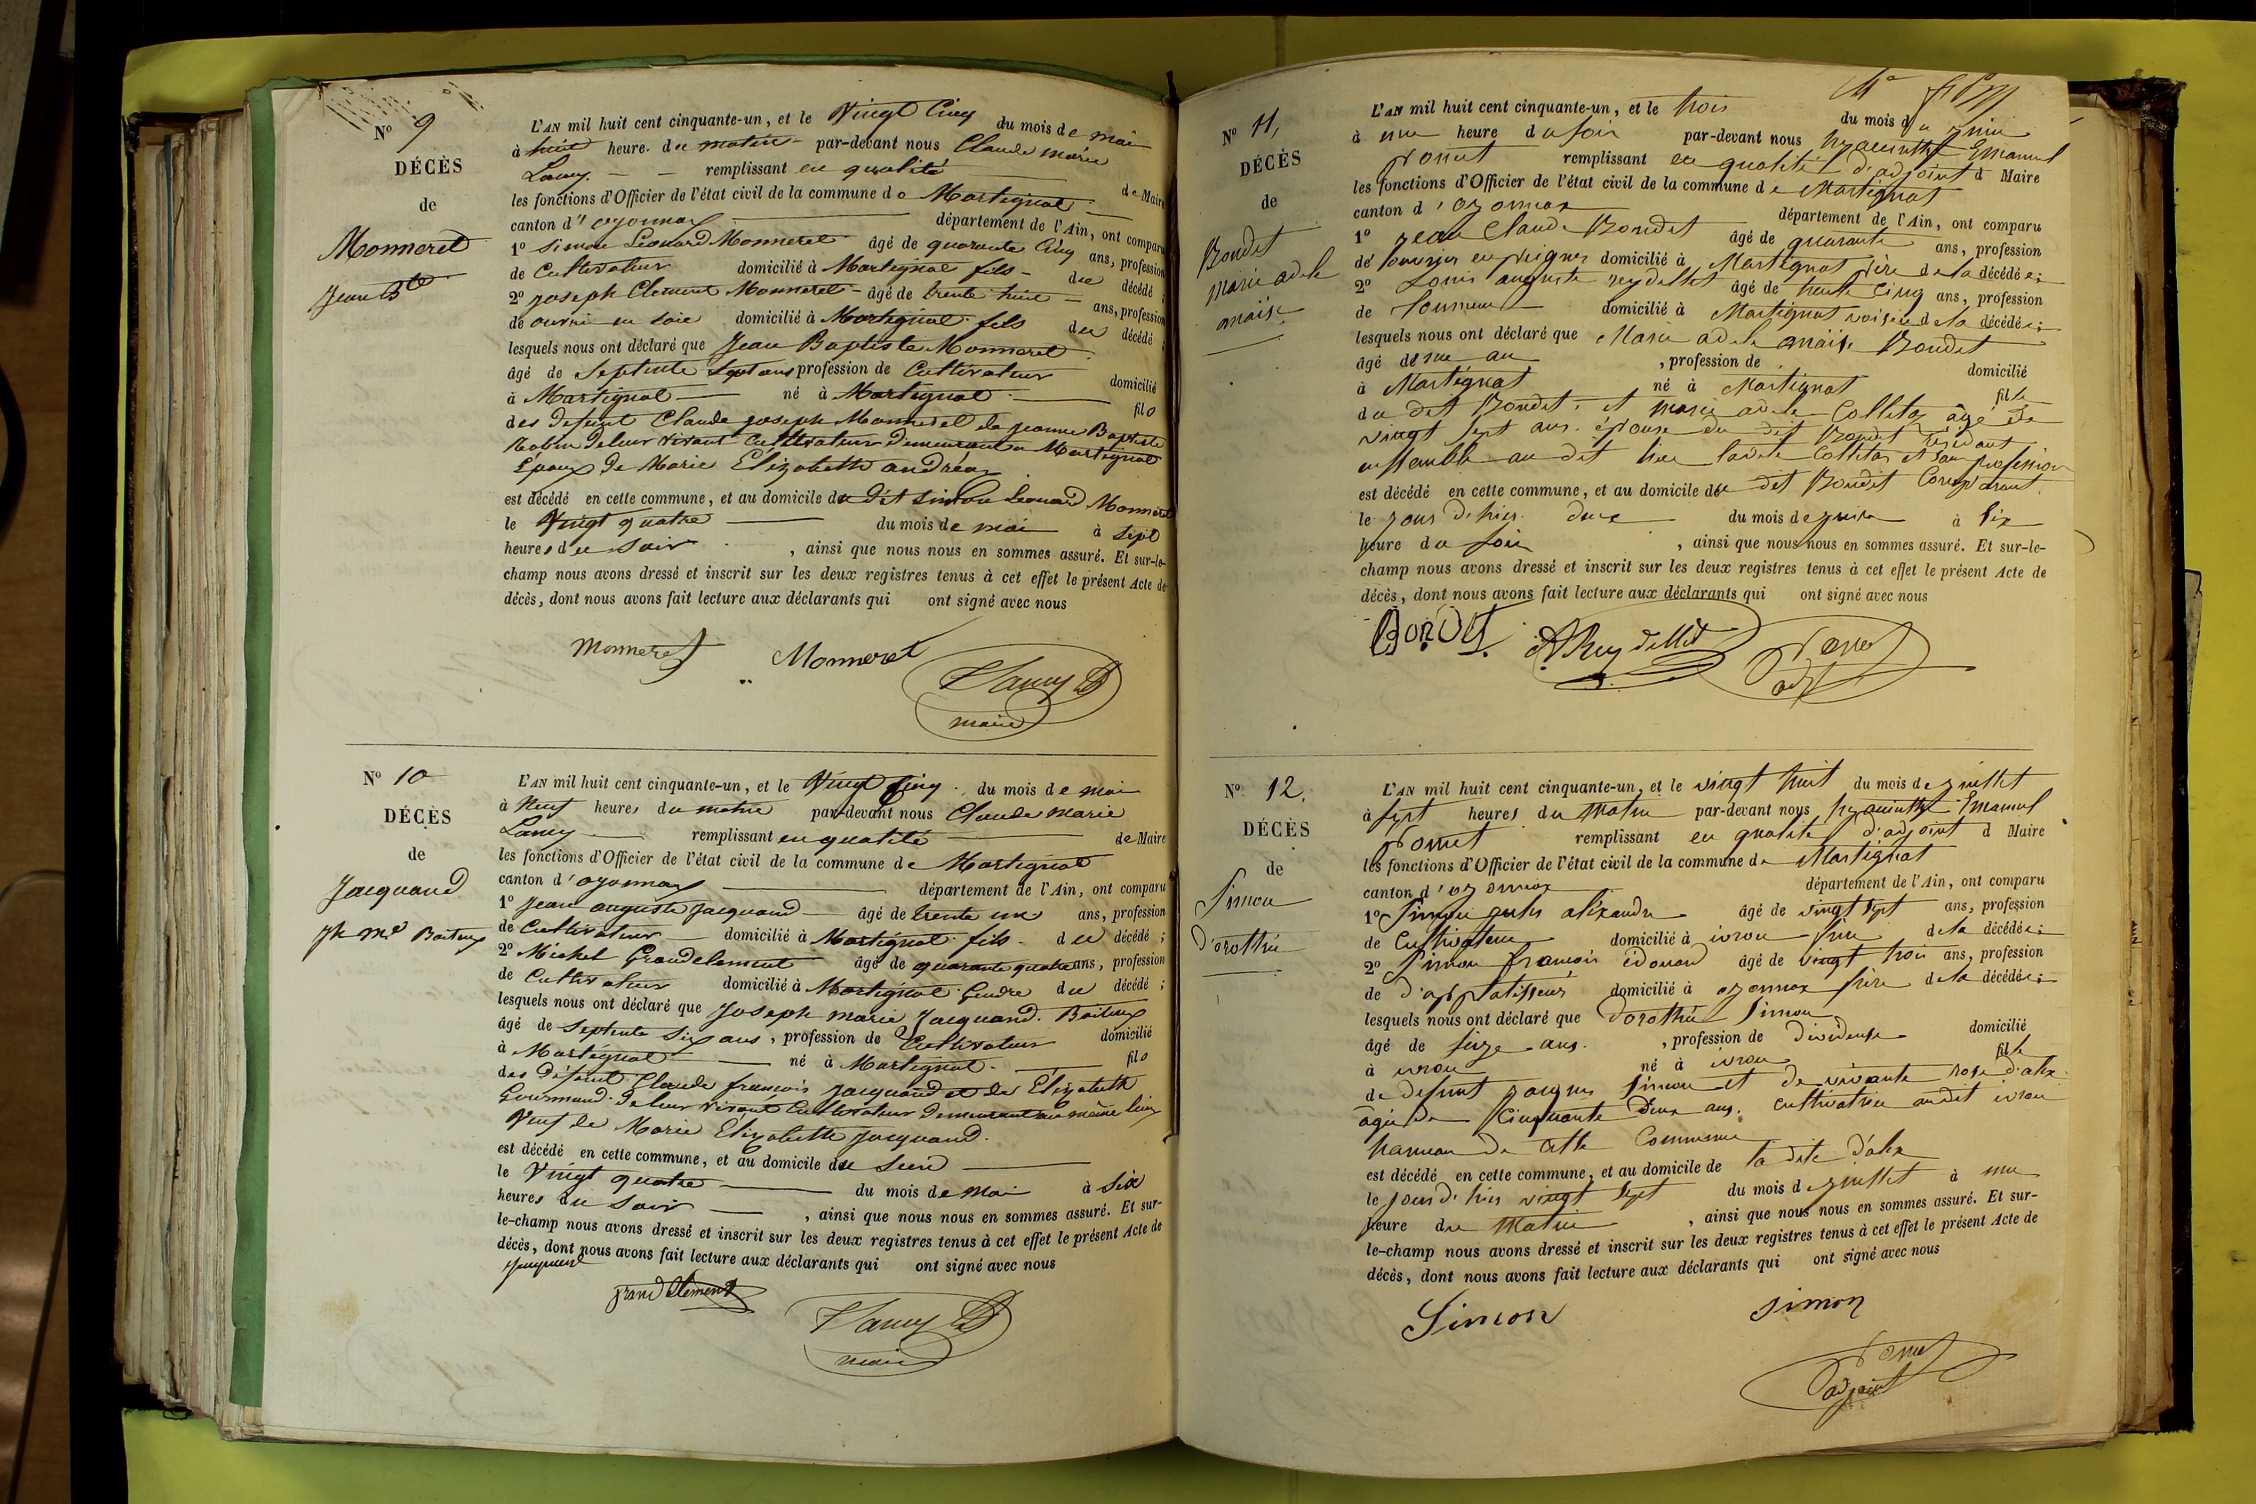 Nº 9
DÉCÈS
de
Monneret
Jean Bte
L'AN mil huit cent cinquante-un, et le Vingt Cinq du mois de mai
à huit heure du matin par-devant nous Claude marie
Lamy remplissant en qualité de Maire
les fonctions d'Officier de l'état civil de la commune de Martignat
canton d'oyonnax département de l'Ain, ont comparu
1º Simon Léonard Monneret âgé de quarante Cinq ans, profession
de Cultivateur domicilié à Martignat fils du décédé ;
2º Joseph Clément Monneret âgé de trente huit ans, profession
de ouvrié en soie domicilié à Martignat fils du décédé ;
lesquels nous ont déclaré que Jean Baptiste Monneret
âgé de Septente Sept ans profession de Cultivateur domicilié
à Martignat né à Martignat fils
des defunt Claude joseph Monneret et de jeanne Baptiste
de leur vivant Cultivateur demeurant a Martignat
Epoux de Marie Elizabette andréa
est décédé en cette commune, et au domicile du dit Simon Léonard Monneret
le Vingt quatre du mois de mai à Sept
heures du soir , ainsi que nous nous en sommes assuré. Et sur-le-
champ nous avons dressé et inscrit sur les deux registres tenus à cet effet le présent Acte de
décès, dont nous avons fait lecture aux déclarants qui ont signé avec nous
Monneret Monneret Lamy
maire
Nº 10
DÉCÈS
de
Jacquand
Jh Me Boiteux
L'AN mil huit cent cinquante-un, et le Vingt Cinq du mois de mai
à Neuf heures du matin par-devant nous Claude Marie
Lamy remplissant en qualité de Maire
les fonctions d'Officier de l'état civil de la commune de Martignat
canton d'oyonnax département de l'Ain, ont comparu
1º Jean auguste Jacquand âgé de trente un ans, profession
de Cultivateur domicilié à Martignat fils du décédé ;
2º Michel Grandclement âgé de quarante quatre ans, profession
de Cultivateur domicilié à Martignat Gendre du décédé ;
lesquels nous ont déclaré que Joseph marie Jacquand Boiteux
âgé de Septente Six ans, profession de Cultivateur domicilié
à Martignat né à Martignat fils
des défunt Claude françois Jacquand et de Elizabeth
Gourmand de leur vivant Cultivateur demeurant au même lieu
Veuf de Marie Elizabette Jacquand
est décédé en cette commune, et au domicile du Sien
le Vingt quatre du mois de Mai à Six
heures du Soir , ainsi que nous nous en sommes assuré. Et sur-
le-champ nous avons dressé et inscrit sur les deux registres tenus à cet effet le présent Acte de
décès, dont nous avons fait lecture aux déclarants qui ont signé avec nous
Jacquand
grand Clement Lamy
maire
Nº 11,
DÉCÈS
de
Bondet
marie adele
anaise
L'AN mil huit cent cinquante-un, et le trois du mois du juin
à une heure du soir par-devant nous hyacinthe Emanuel
remplissant en qualité d'adjoint d Maire
les fonctions d'Officier de l'état civil de la commune de Martignat
canton d'oyonnax département de l'Ain, ont comparu
1º jean Claude Bondet âgé de quarante ans, profession
de ouvrier en peignes domicilié à Martignat père de la décédée ;
2º Louis auguste reydellet âgé de trente Cinq ans, profession
de Tourneur domicilié à Martignat voisin de la décédée ;
lesquels nous ont déclaré que Marie adele anaise Bondet
âgé de une an , profession de domicilié
à Martignat né à Martignat fille
du dit Bondet et marie adele Colletaz âgé de
vingt Sept ans épouse du dit Bondet résidant
ensemble au dit lieu ladite Colletaz est sans profession
est décédé en cette commune, et au domicile du dit Bondet Comparant
le jour d'hier deux du mois de juin à Six
heure du soir , ainsi que nous nous en sommes assuré. Et sur-le-
champ nous avons dressé et inscrit sur les deux registres tenus à cet effet le présent Acte de
décès, dont nous avons fait lecture aux déclarants qui ont signé avec nous
BONDET A Reydellet
adj
Nº 12.
DÉCÈS
de
Simon
Dorothée
L'AN mil huit cent cinquante-un, et le vingt huit du mois de juillet
à sept heures du Matin par-devant nous hyacinthe Emanuel
remplissant en qualité d'adjoint d Maire
les fonctions d'Officier de l'état civil de la commune de Martignat
canton d'oyonnax département de l'Ain, ont comparu
1º Simon jules aléxandre âgé de vingt sept ans, profession
de Cultivateur domicilié à ivron frère de la décédée ;
2º Simon françois édouard âgé de vingt trois ans, profession
de d'applatisseur domicilié à oyonnax frère de la décédée ;
lesquels nous ont déclaré que Dorothée Simon
âgé de seize ans. , profession de devideuse domicilié
à ivron né à ivron fille
de defunt jacques Simon et de vivante rose d'alex
agée de Cinquante deux ans. Cultivatrice audit ivron
hameau de cette Commune
est décédé en cette commune, et au domicile de la dite d'alex
le jour d'hier vingt Sept du mois de juillet à une
heure du Matin , ainsi que nous nous en sommes assuré. Et sur-
le-champ nous avons dressé et inscrit sur les deux registres tenus à cet effet le présent Acte de
décès, dont nous avons fait lecture aux déclarants qui ont signé avec nous
Simon simon
adjoint